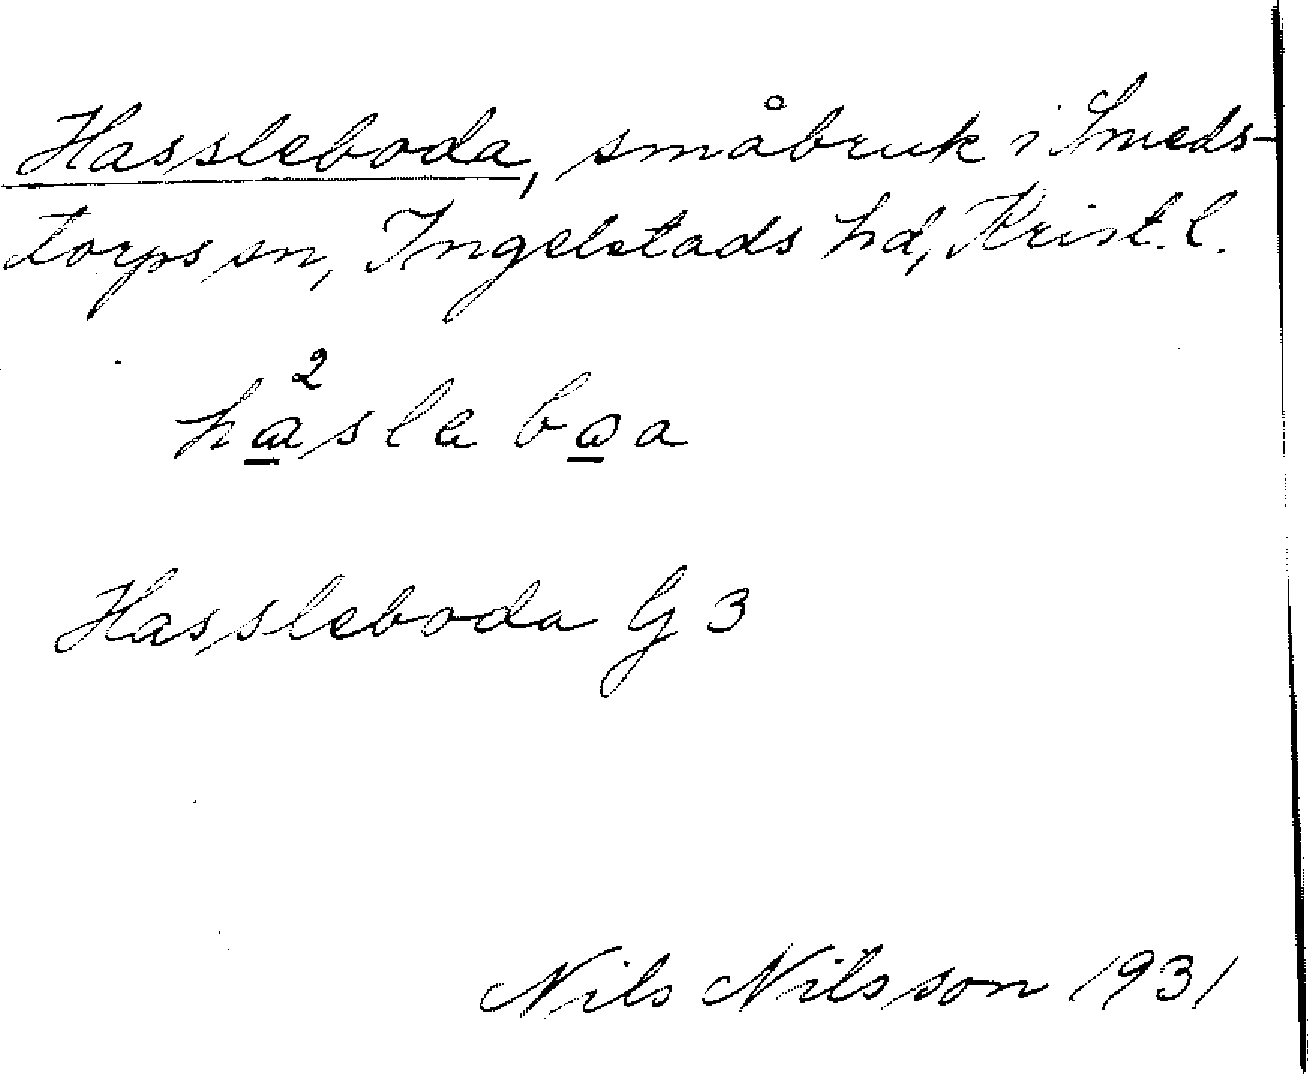 Hassleboda, småbruk i Smeds-
torps sn, Ingelstads hd, Krist. l.
Hassleboda G 3
Nils Nilsson 1931